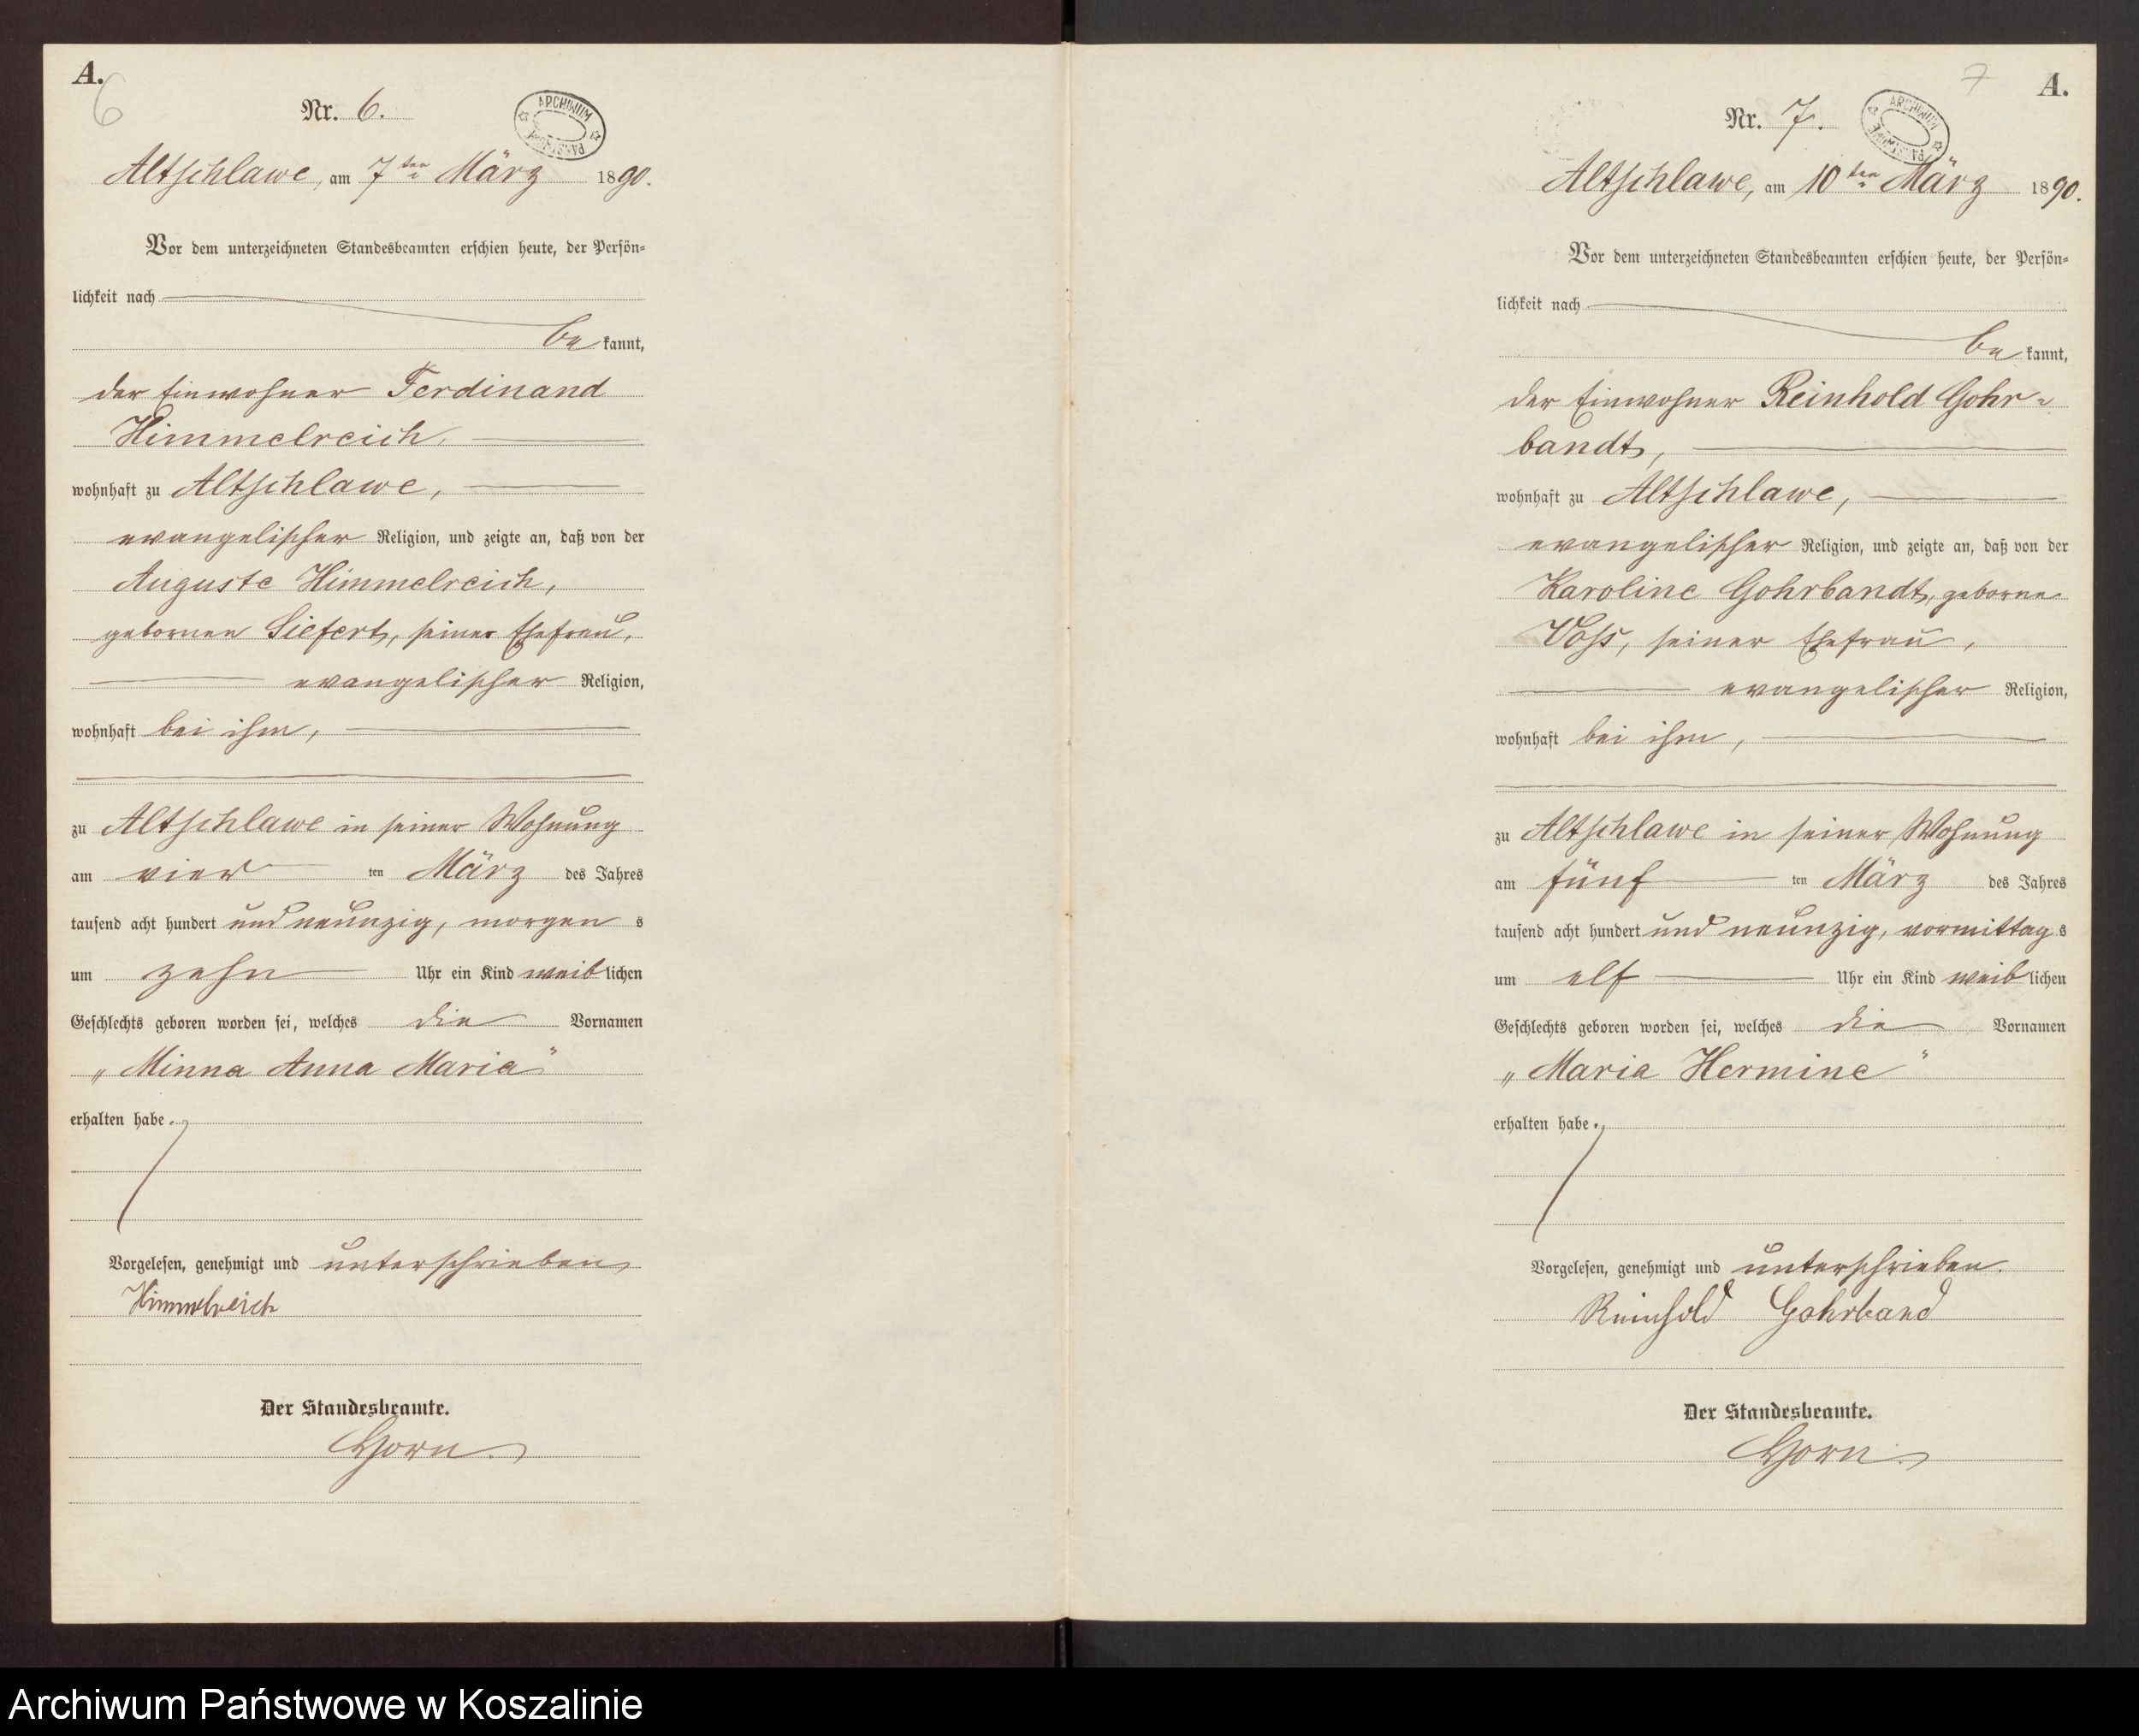 A.
6
Nr. 6.
ARCHIWUM
PAŃSTWOWE
Altschlawe, am 7ten März 1890.
Vor dem unterzeichneten Standesbeamten erschien heute, der Persön=
lichkeit nach
be kannt,
der Einwohner Ferdinand
Himmelreich,
wohnhaft zu Altschlawe,
evangelischer Religion, und zeigte an, daß von der
Auguste Himmelreich,
gebornen Siefert, seiner Ehefrau,
evangelischer Religion,
wohnhaft bei ihm,
zu Altschlawe in seiner Wohnung
am vier ten März des Jahres
tausend acht hundert und neunzig, morgen s
um zehn Uhr ein Kind weib lichen
Geschlechts geboren worden sei, welches die Vornamen
„Minna Anna Maria“
erhalten habe.
Vorgelesen, genehmigt und unterschrieben
Himmelreich
Der Standesbeamte.
Gorn.
7
A.
Nr. 7.
ARCHIWUM
PAŃSTWOWE
Altschlawe, am 10ten März 1890.
Vor dem unterzeichneten Standesbeamten erschien heute, der Persön=
lichkeit nach
be kannt,
der Einwohner Reinhold Gohr=
bandt,
wohnhaft zu Altschlawe,
evangelischer Religion, und zeigte an, daß von der
Karoline Gohrbandt, geborne
Voss, seiner Ehefrau,
evangelischer Religion,
wohnhaft bei ihm,
zu Altschlawe in seiner Wohnung
am fünf ten März des Jahres
tausend acht hundert und neunzig, vormittag s
um elf Uhr ein Kind weib lichen
Geschlechts geboren worden sei, welches die Vornamen
„Maria Hermine“
erhalten habe.
Vorgelesen, genehmigt und unterschrieben.
Reinhold Gohrband
Der Standesbeamte.
Gorn.
Archiwum Państwowe w Koszalinie